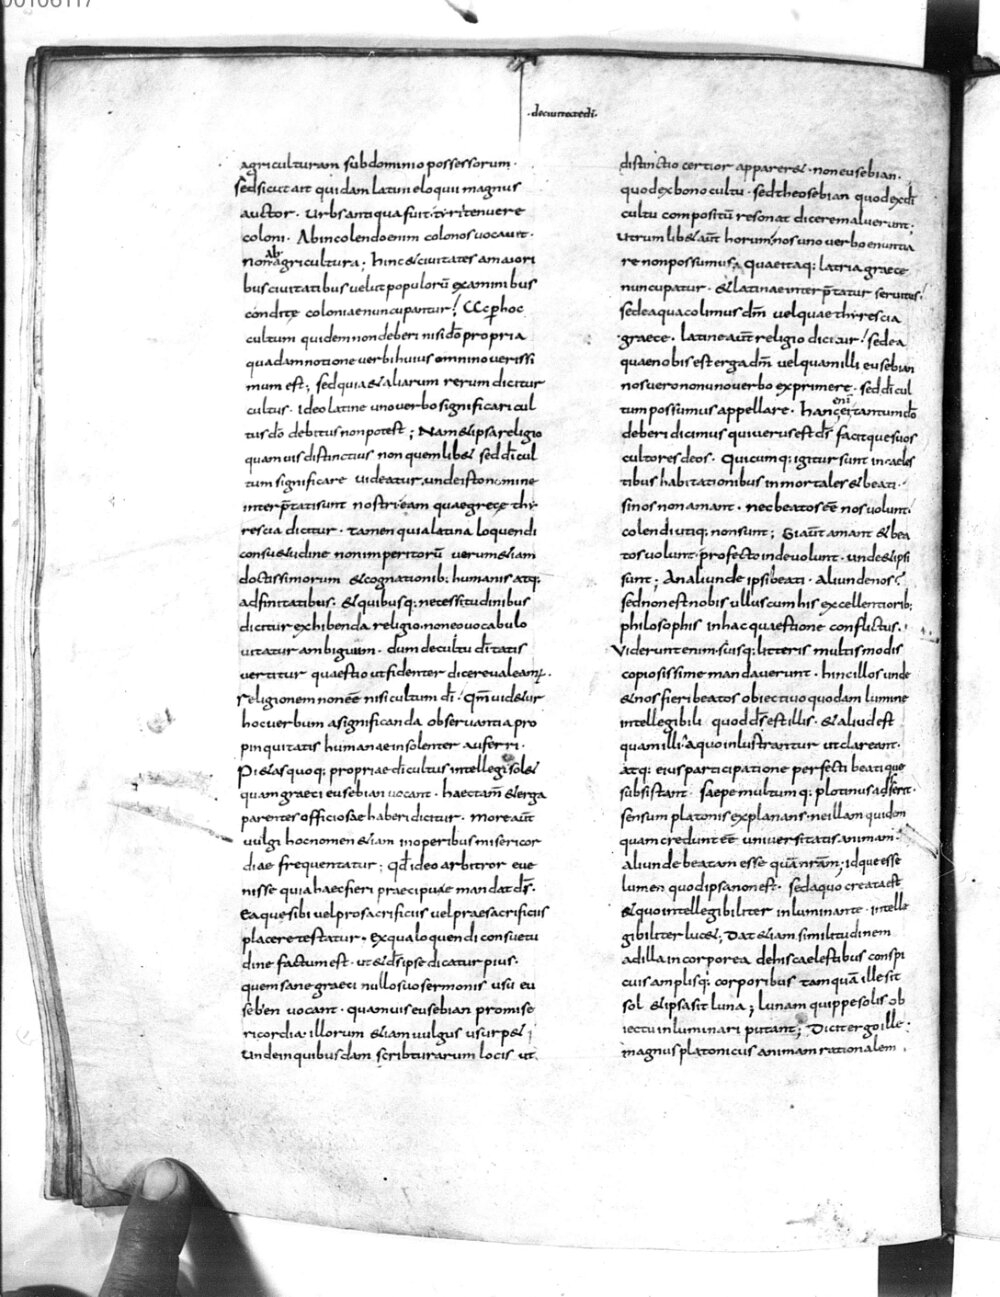 00106117
· deciuitatedi ·
agriculturam sub dominio possessorum ·
sed sicut ait quidam latini eloquii magnus
auctor · Urbs antiqua fuit · tirii tenuere
coloni · Ab incolendo enim colonos uocauit ·
non ab agricultura ; hinc & ciuitates a maiori
bus ciuitatibus uelut populorū examinibus
conditę coloniae nuncupantur ! Ac p̱ hoc
cultum quidem non deberi nisi dō propria
quadam notione uerbi huius omnino uerissi
mum est ; sed quia & aliarum rerum dicitur
cultus · Ideo latine uno uerbo significari cul
tus dō debitus non potest ; Nam & ipsa religio
quamuis distinctius non quemlib& sed dī cul
tum significare uideatur unde isto nomine
interp̄tati sunt nostri eam quae grece thr
rescia dicitur · tamen quia latina loquendi
consu&udine non imperitorū uerum &iam
doctissimorum & cognationib; humanis atq;
adfinitatibus · & quibusq; necessitudinibus
dicitur exhibenda religio · non eo uocabulo
uitatur ambiguum · dum de cultu dītatis
uertitur quaestio ut fidenter dicere ualeam; ·
religionem non eē nisi cultum dī ! Qm̄ uid&ur
hoc uerbum a significanda obseruantia pro
pinquitatis humanae insolenter auferri ·
Pi&as quoq; propriae dī cultus intellegi sol&
quam graeci eusebian uocant · haec tam̄ & erga
parentes officiosae haberi dicitur · more aūt
uulgi hoc nomen &iam in operibus misericor
diae frequentatur ; qd̄ ideo arbitror eue
nisse quia haec fieri praecipuae mandat ds̄ ·
Ea que sibi uel pro sacrificiis uel prae sacrificiis
placere testatur · Ex qua loquendi consuetu
dine factum est · ut & ds̄ ipse dicatur pius ·
quem sane graeci nullo suo sermonis usu eu
seben uocant · quamuis eusebian pro mise
ricordia · illorum &iam uulgus usurp& ;
Unde in quibusdam scribturarum locis ut
distinctio certior apparer& · non eusebian ·
quod ex bono cultu · sed theosebian quod ex dī
cultu compositū resonat dicere maluerunt ;
Utrum lib& aūt horum nos uno uerbo enuntia
re non possumus ; Quae itaq; latria graece
nuncupatur · & latinae interp̄tatur seruitus !
sed ea qua colimus dm̄ uel quae thrrescia
graece · latine aūt religio dicitur ! sed ea
quae nobis est erga dm̄ uel quam illi eusebian
nos uero non uno uerbo exprimere · sed dī cul
tum possumus appellare · hanc eni ei tantum dō
deberi dicimus qui uerus est ds̄ facitque suos
cultores deos · Quicumq; igitur sunt in caeles
tibus habitationibus inmortales & beati ·
si nos non amant · nec beatos eē nos uolunt ·
colendi utiq; non sunt ; Si aūt amant & bea
tos uolunt · profecto inde uolunt · unde & ipsi
sunt ; An aliunde ipsi beati · aliunde nos ?
sed non est nobis ullus cum his excellentiorib;
philosophis in hac quaestione conflictus ·
Viderunt enim suisq; litteris multis modis
copiosissime mandauerunt · hinc illos unde
& nos fieri beatos obiectu quodam lumine
intellegibili quod ds̄ est illis · & aliud est
quam illi · a quo inlustrantur ut clareant ·
atq; eius participatione perfecti beatique
subsistant · saepe multumq; plotinus adserit ·
sensum platonis explanans · ne illam quidem
quam credunt eē uniuersitatis animam ·
aliunde beatam esse quā nrām ; idque esse
lumen quod ipsa non est · sed a quo creata est
& quo intellegibiliter inluminante · intelle
gibiliter luc& ; Dat &iam similitudinem
ad illa incorporea de his caelestibus conspi
cuis amplisq; corporibus tamquā ille sit
sol & ipsa sit luna ; lunam quippe solis ob
iectu inluminari putant ; Dicit ergo ille
magnus platonicus animam rationalem ·